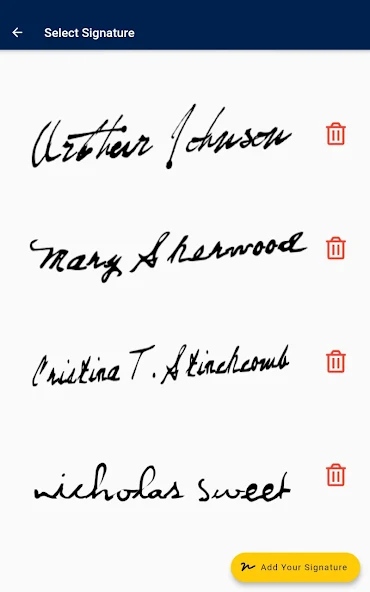 Select Signature
Arthur Johnson
Mary Sherwood
Cristina T. Stinchcomb
nicholas sweet
Add Your Signature